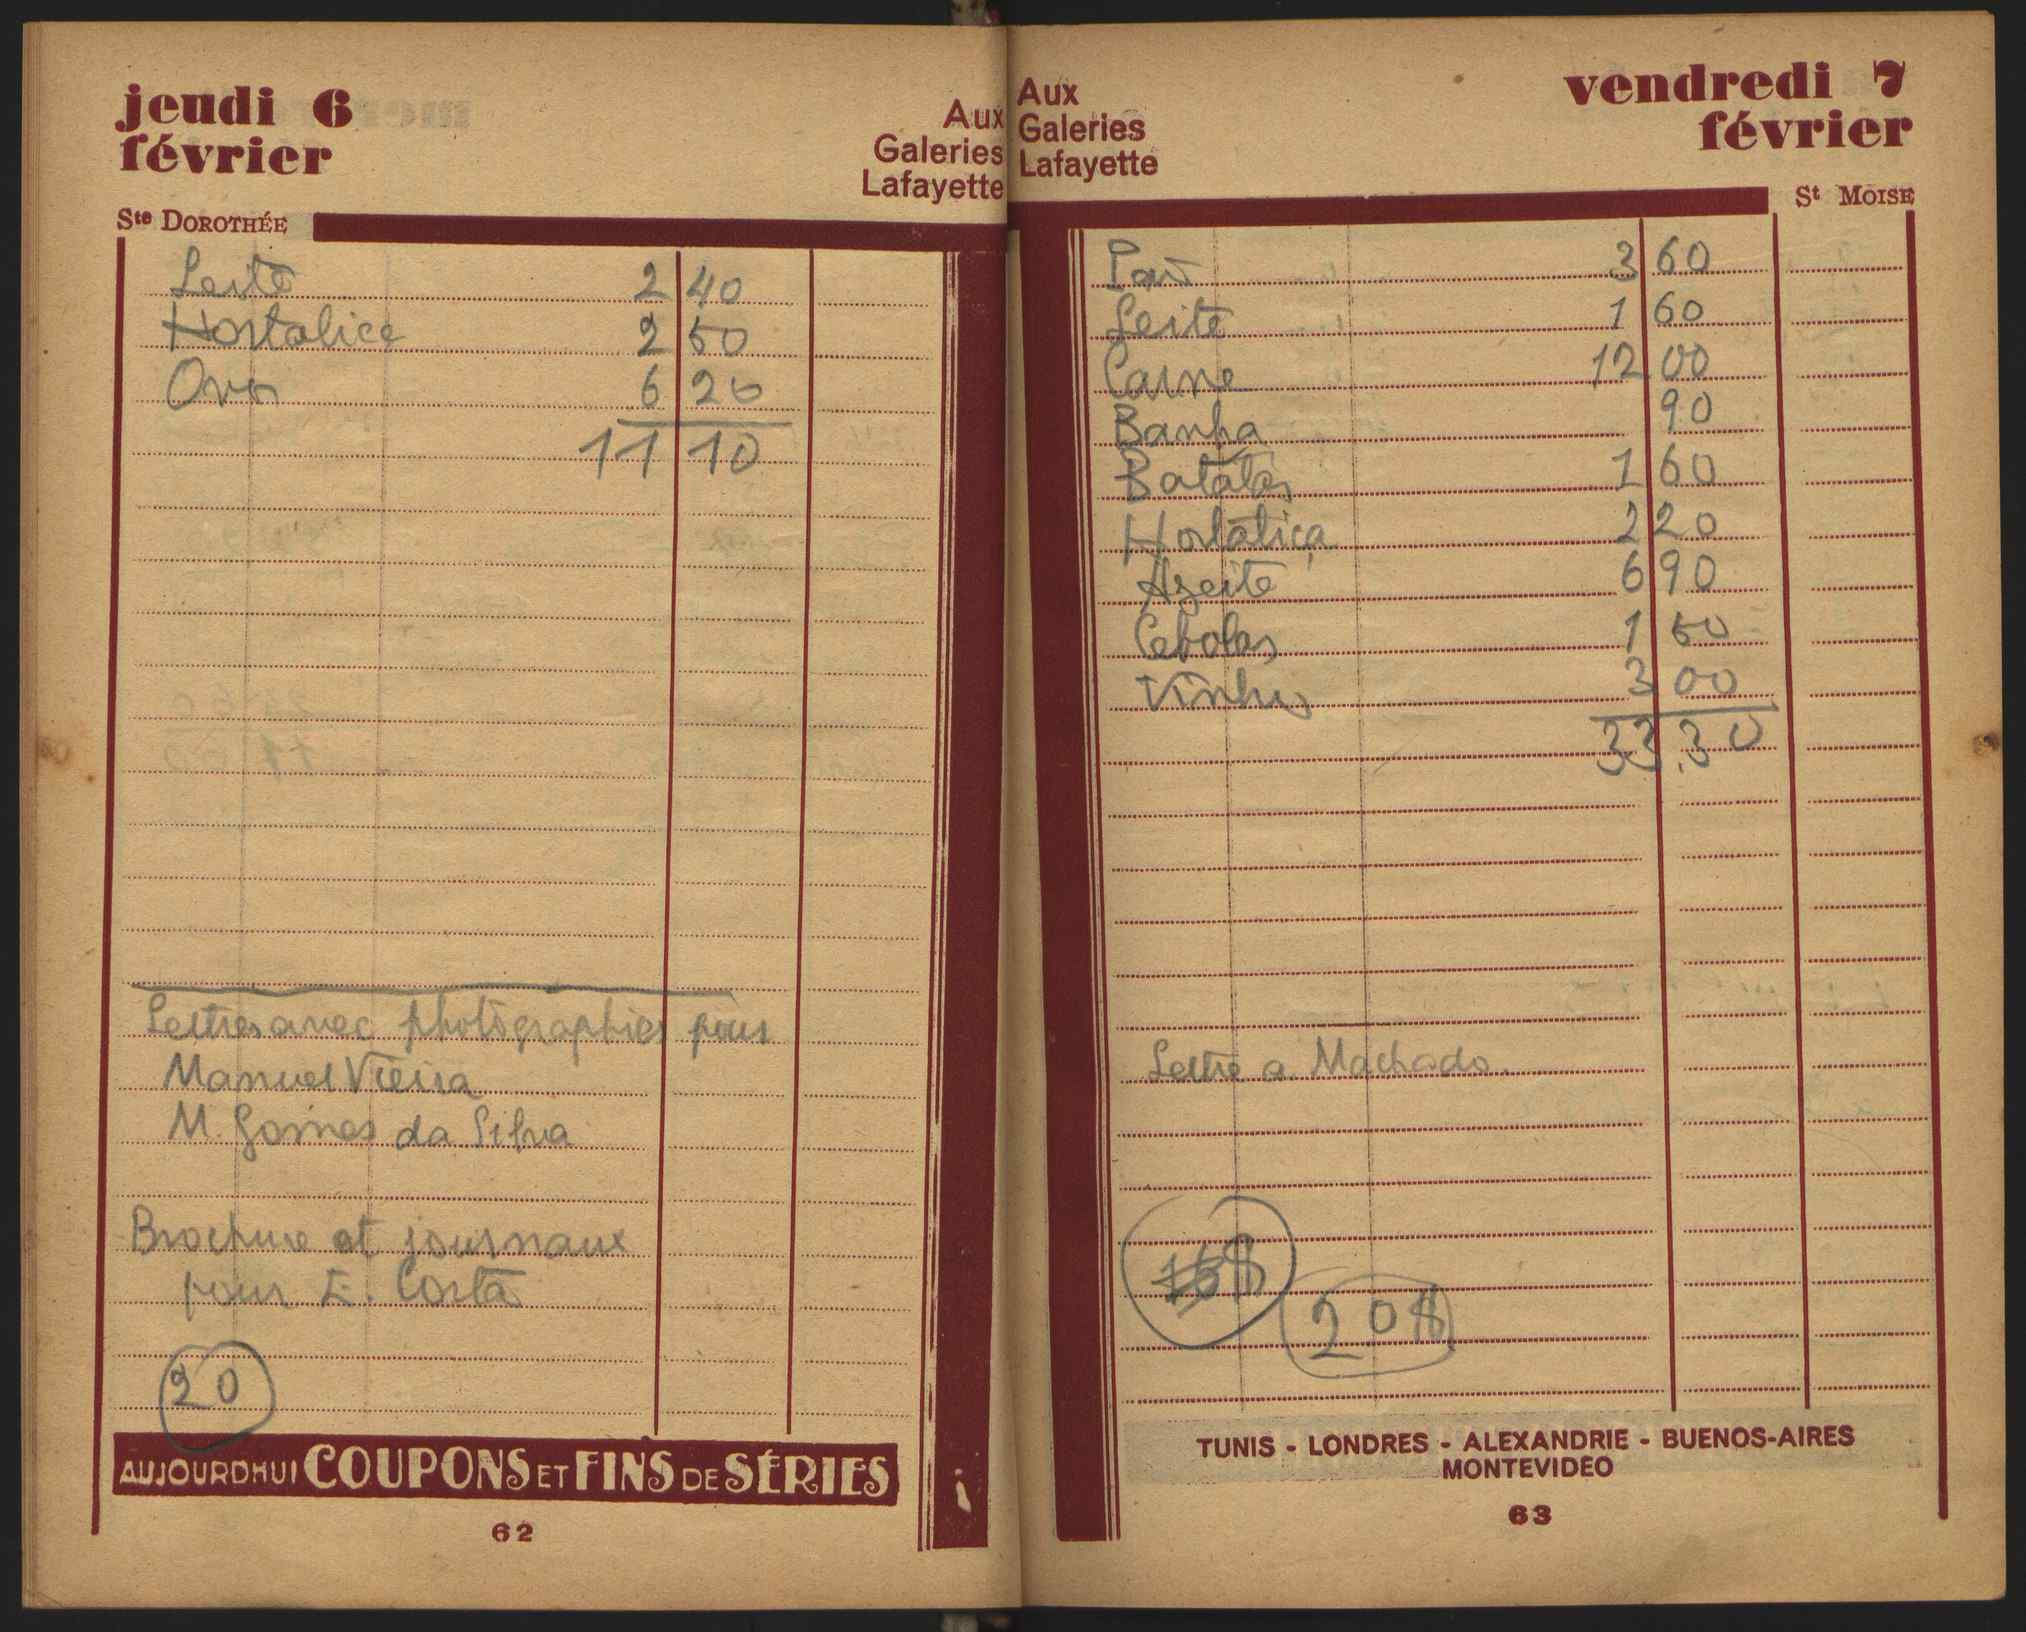 jeudi 6
février
Aux
Galeries
Lafayette
Ste DOROTHÉE
Leite 2 40
Hortalice 2 50
Ovos 6 20
11 10
Lettres avec photographies pour
Manuel Vieira
M. Gomes da Silva
Brochure et journaux
pour E. Costa
20
AUJOURDHUI COUPONS ET FINS DE SÉRIES
62
Aux
Galeries
Lafayette
vendredi 7
février
St MOISE
Pão 3 60
Leite 1 60
Carne 12 00
Banha 90
Batatas 1 60
Hortaliça 2 20
Azeite 6 90
Cebolas 1 50
Vinho 3 00
33 30
Lettre a Machado.
15$
20$
TUNIS - LONDRES - ALEXANDRIE - BUENOS-AIRES
MONTEVIDEO
63